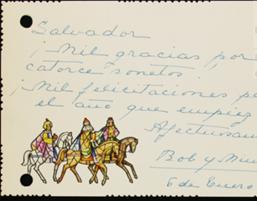 Salvador
¡Mil gracias por
catorce sonetos
¡Mil felicitaciones
el año que empiez
Afectuosam
Bob y
6 de Enero